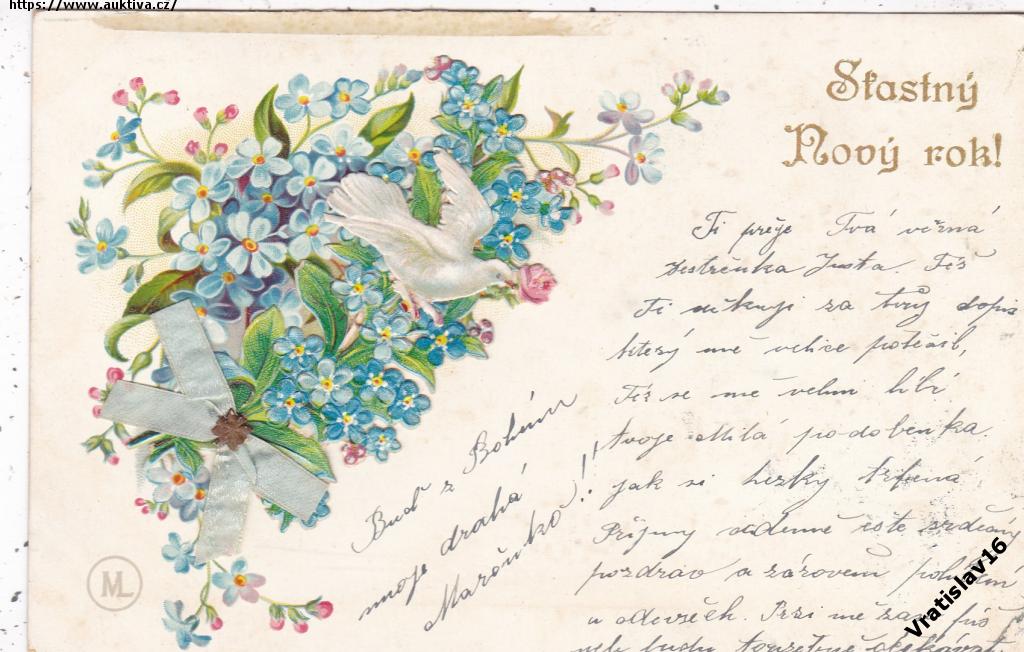 https://www.auktiva.cz/
Stastný
Nový rok!
Ti přeje Tvá věrná
sestřenka Justa. Též
Ti děkuji za tvůj dopis
který mě velice potěšil,
Též se mě velmi líbí
tvoje Milá podobenka.
jak si hezky
Přijmy ode mě srdečný
pozdrav a zároveň
u
budu toužebně
Buď z Bohem
moje drahá
Mařenko!!
ML
Vratislav16